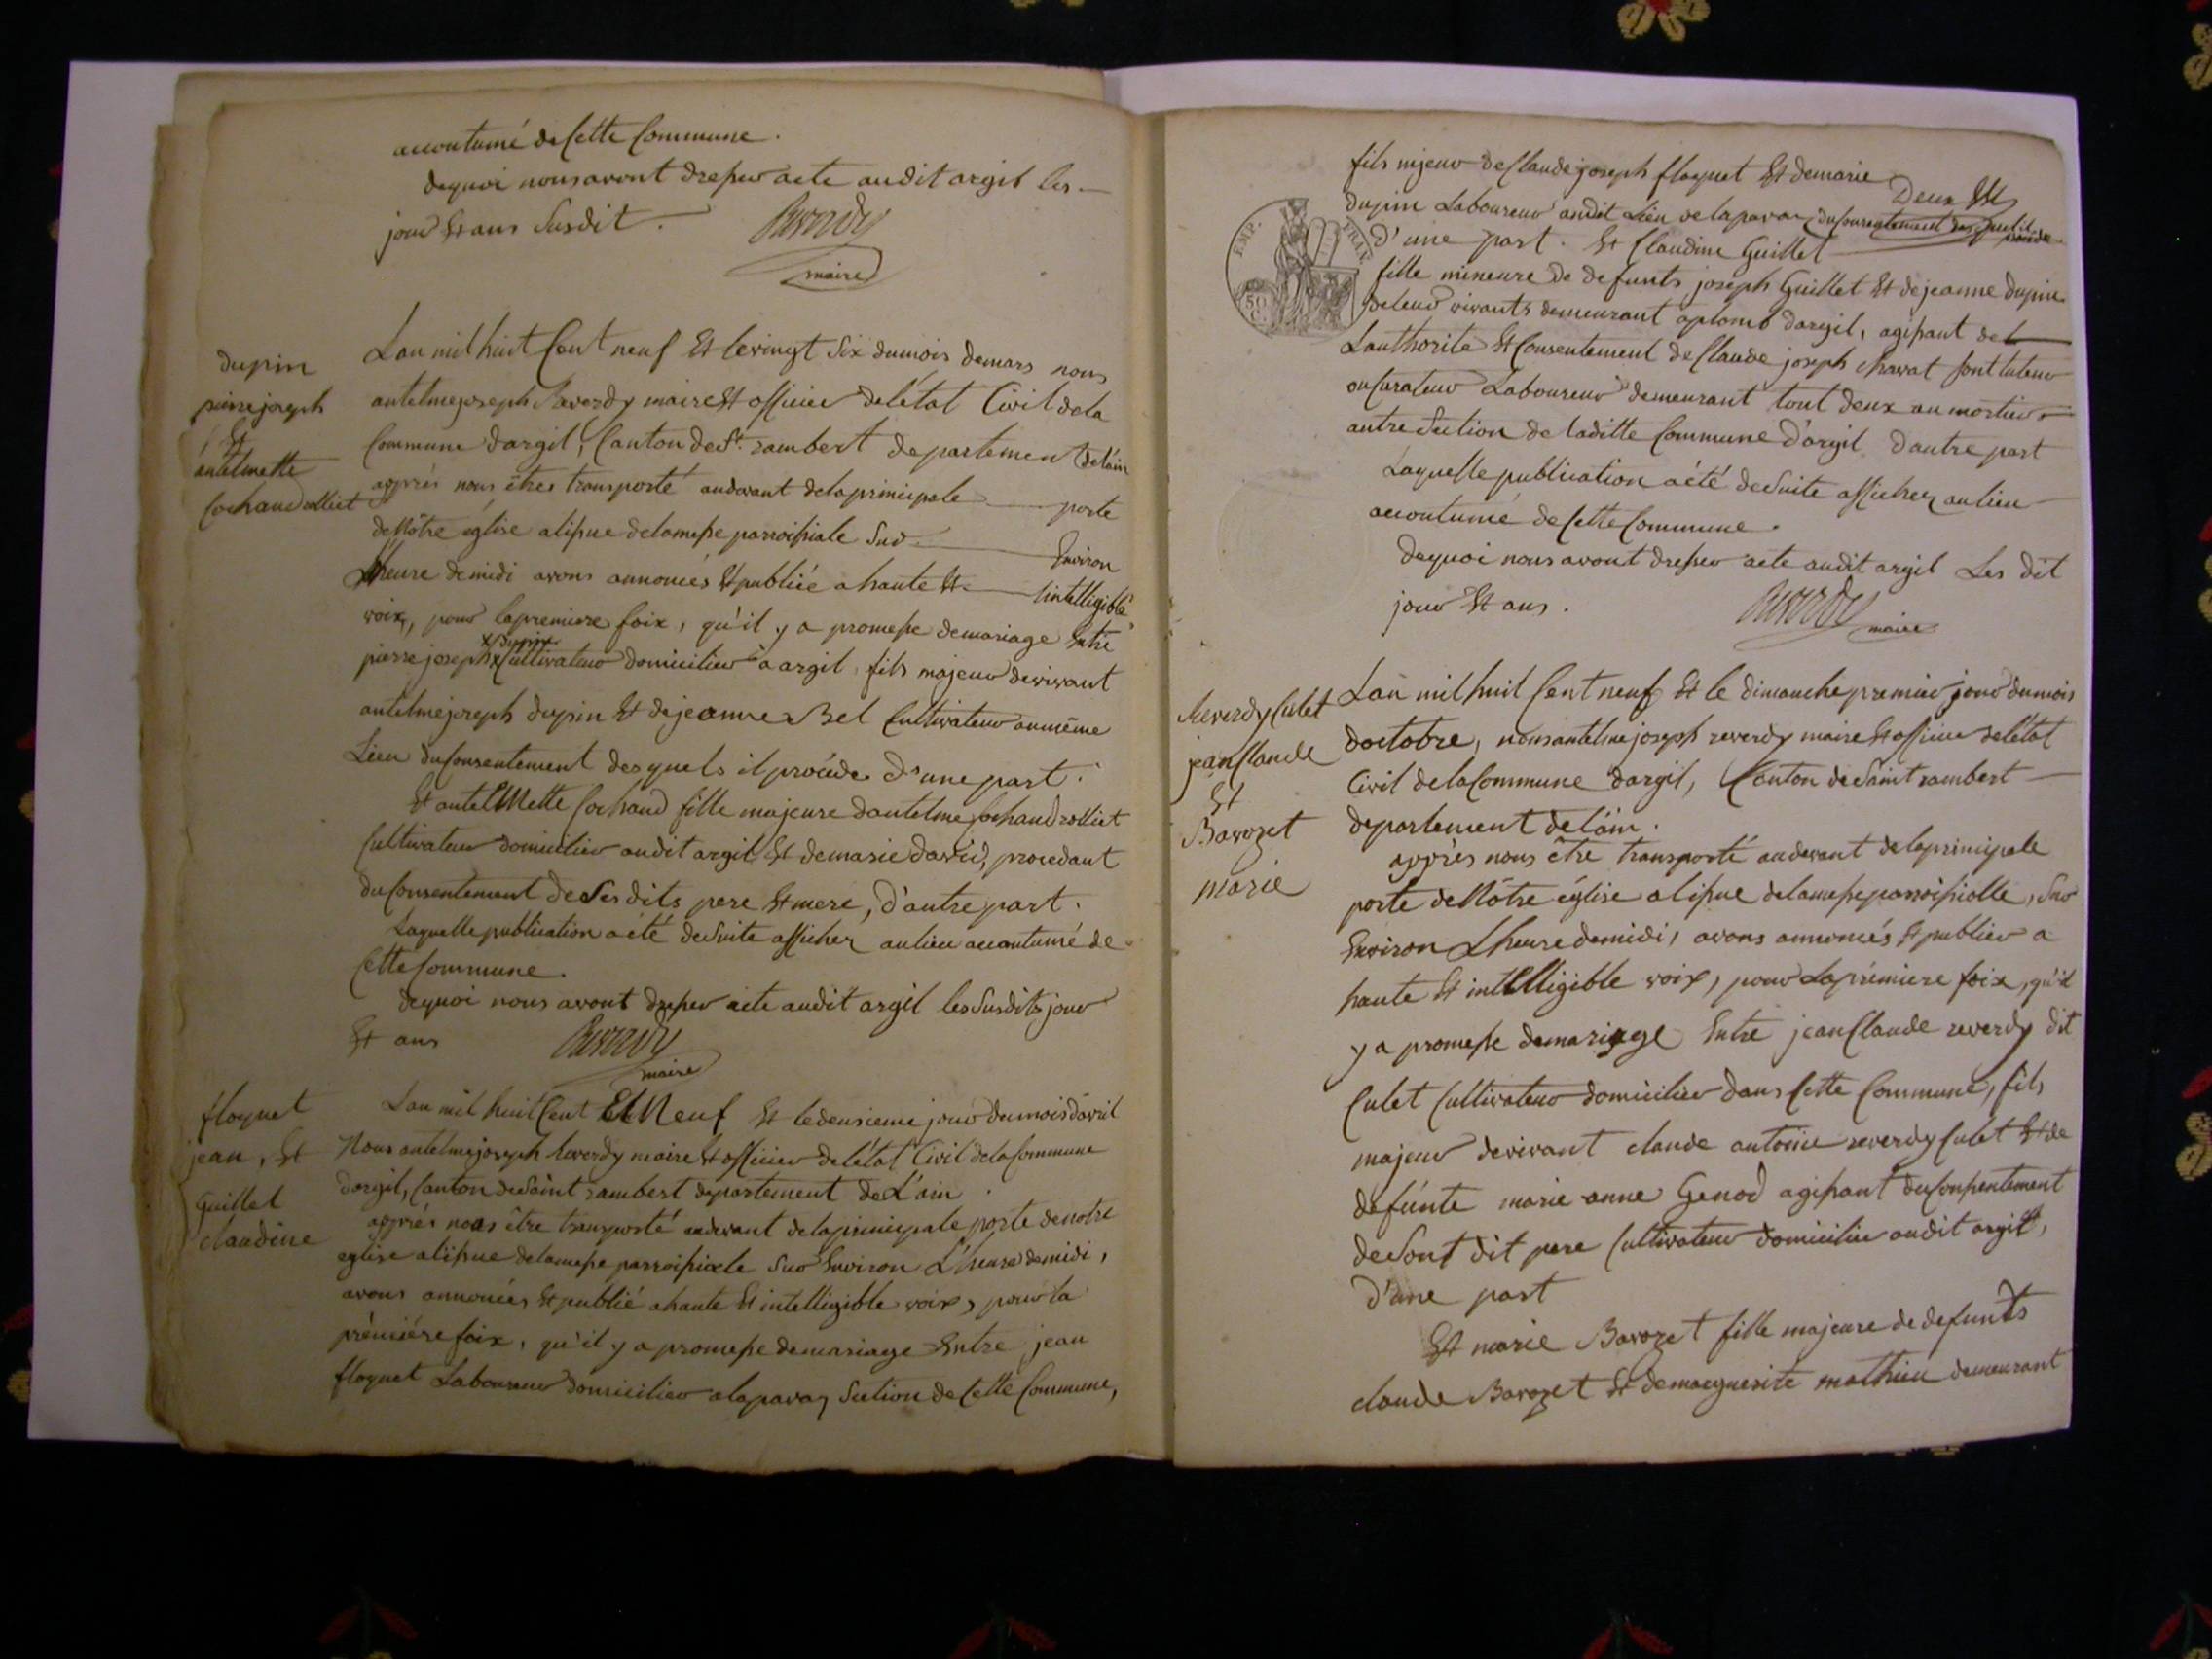 accoutumé de Cette Commune.
dequoi nous avont dresser acte audit argil les
jour Et ans Susdit.
Reverdy
maire
dupin
pierre joseph
Et
antelmette
Cochaud rolliet
Lan mil huit Cent neuf Et le vingt Six dumois demars nous
antelme joseph Reverdy maire Et officier delétat Civil dela
Commune dargil, Canton de St. rambert departement delain
apprés nous êtres transporté audevant delaprincipale porte
de Nôtre église a lissue delamesse parroissiale Sur Environ
Lheure demidi avons annoncés Et publiée a haute Et intelligible
voix, pour lapremiere foix, qu'il y a promesse demariage Entre
x dupin
pierre joseph x Cultivateur domicilier a argil, fils majeur devivant
antelme joseph dupin Et dejeanne Bel Cultivateur aumême
Lieu duConsentement desquels il procéde d'une part.
Et antelmette Cochaud fille majeure dantelme Cochaud rolliet
Cultivateur domicilier audit argil Et demarie david, procedant
duConsentement de Ses dits pere Et mere, d'autre part.
Laquelle publication a été deSuite afficher aulieu accoutumé de
Cette Commune.
dequoi nous avont dresser acte audit argil les Susdits jour
Et ans
Reverdy
maire
floquet
jean, Et
Guillet
claudine
Lan mil huit Cent Et Neuf Et le deusieme jour dumois davril
Nous antelme joseph Reverdy maire Et officier delétat Civil dela Commune
dargil, Canton de Saint rambert departement de L'ain.
apprés nous être transporté audevant delaprincipale porte denotre
eglise a lissue delamesse parroissiale Sur Environ L'heure demidi,
avons annoncées Et publié a haute Et intelligible voix, pour la
prémiére foix, qu'il y a promesse demariage Entre jean
floquet Laboureur domicilier a laparaz Section de Cette Commune,
fils mjeur de Claude joseph floquet Et demarie
Deux
dupin Laboureur audit Lieu de laparaz duConsentement desquels il procéde
d'une part. Et Claudine Guillet
EMP. FRAN.
50 C.
fille mineure de defunts joseph Guillet Et dejeanne dupin
deleur vivants demeurant aplomb dargil, agissant de
Lauthorité Et Consentement de Claude joseph chavat Sont tuteur
ou Curateur Laboureur demeurant tout deux au mortier
autre Section de laditte Commune d'argil d'autre part
Laquelle publication a été deSuite afficher aulieu
accoutumé de Cette Commune.
dequoi nous avont dresser acte audit argil Les dit
jour Et ans.
Reverdy maire
Reverdy Culet
jean Claude
Et
Bavozet
marie
Lan mil huit Cent neuf Et le dimanche premier jour dumois
doctobre, nous antelme joseph reverdy maire Et officier delétat
Civil dela Commune dargil, Canton de Saint rambert
departement delain.
apprès nous être transporté audevant delaprincipale
porte de Nôtre église a lissue delamesse parroissialle, Sur
Environ Lheure demidi, avons annoncés Et publier a
haute Et intelligible voix, pour Laprémiere foix, qu'il
y a promesse demariage Entre jean Claude reverdy dit
Culet Cultivateur domicilier dans Cette Commune, fils
majeur devivant claude antoine reverdy Culet Et de
defunte marie anne Genod agissant duConsentement
de Sont dit pere Cultivateur domicilier audit argil,
d'une part
Et marie Bavozet fille majeure de defunts
claude Bavozet Et demarguerite mathieu demeurant